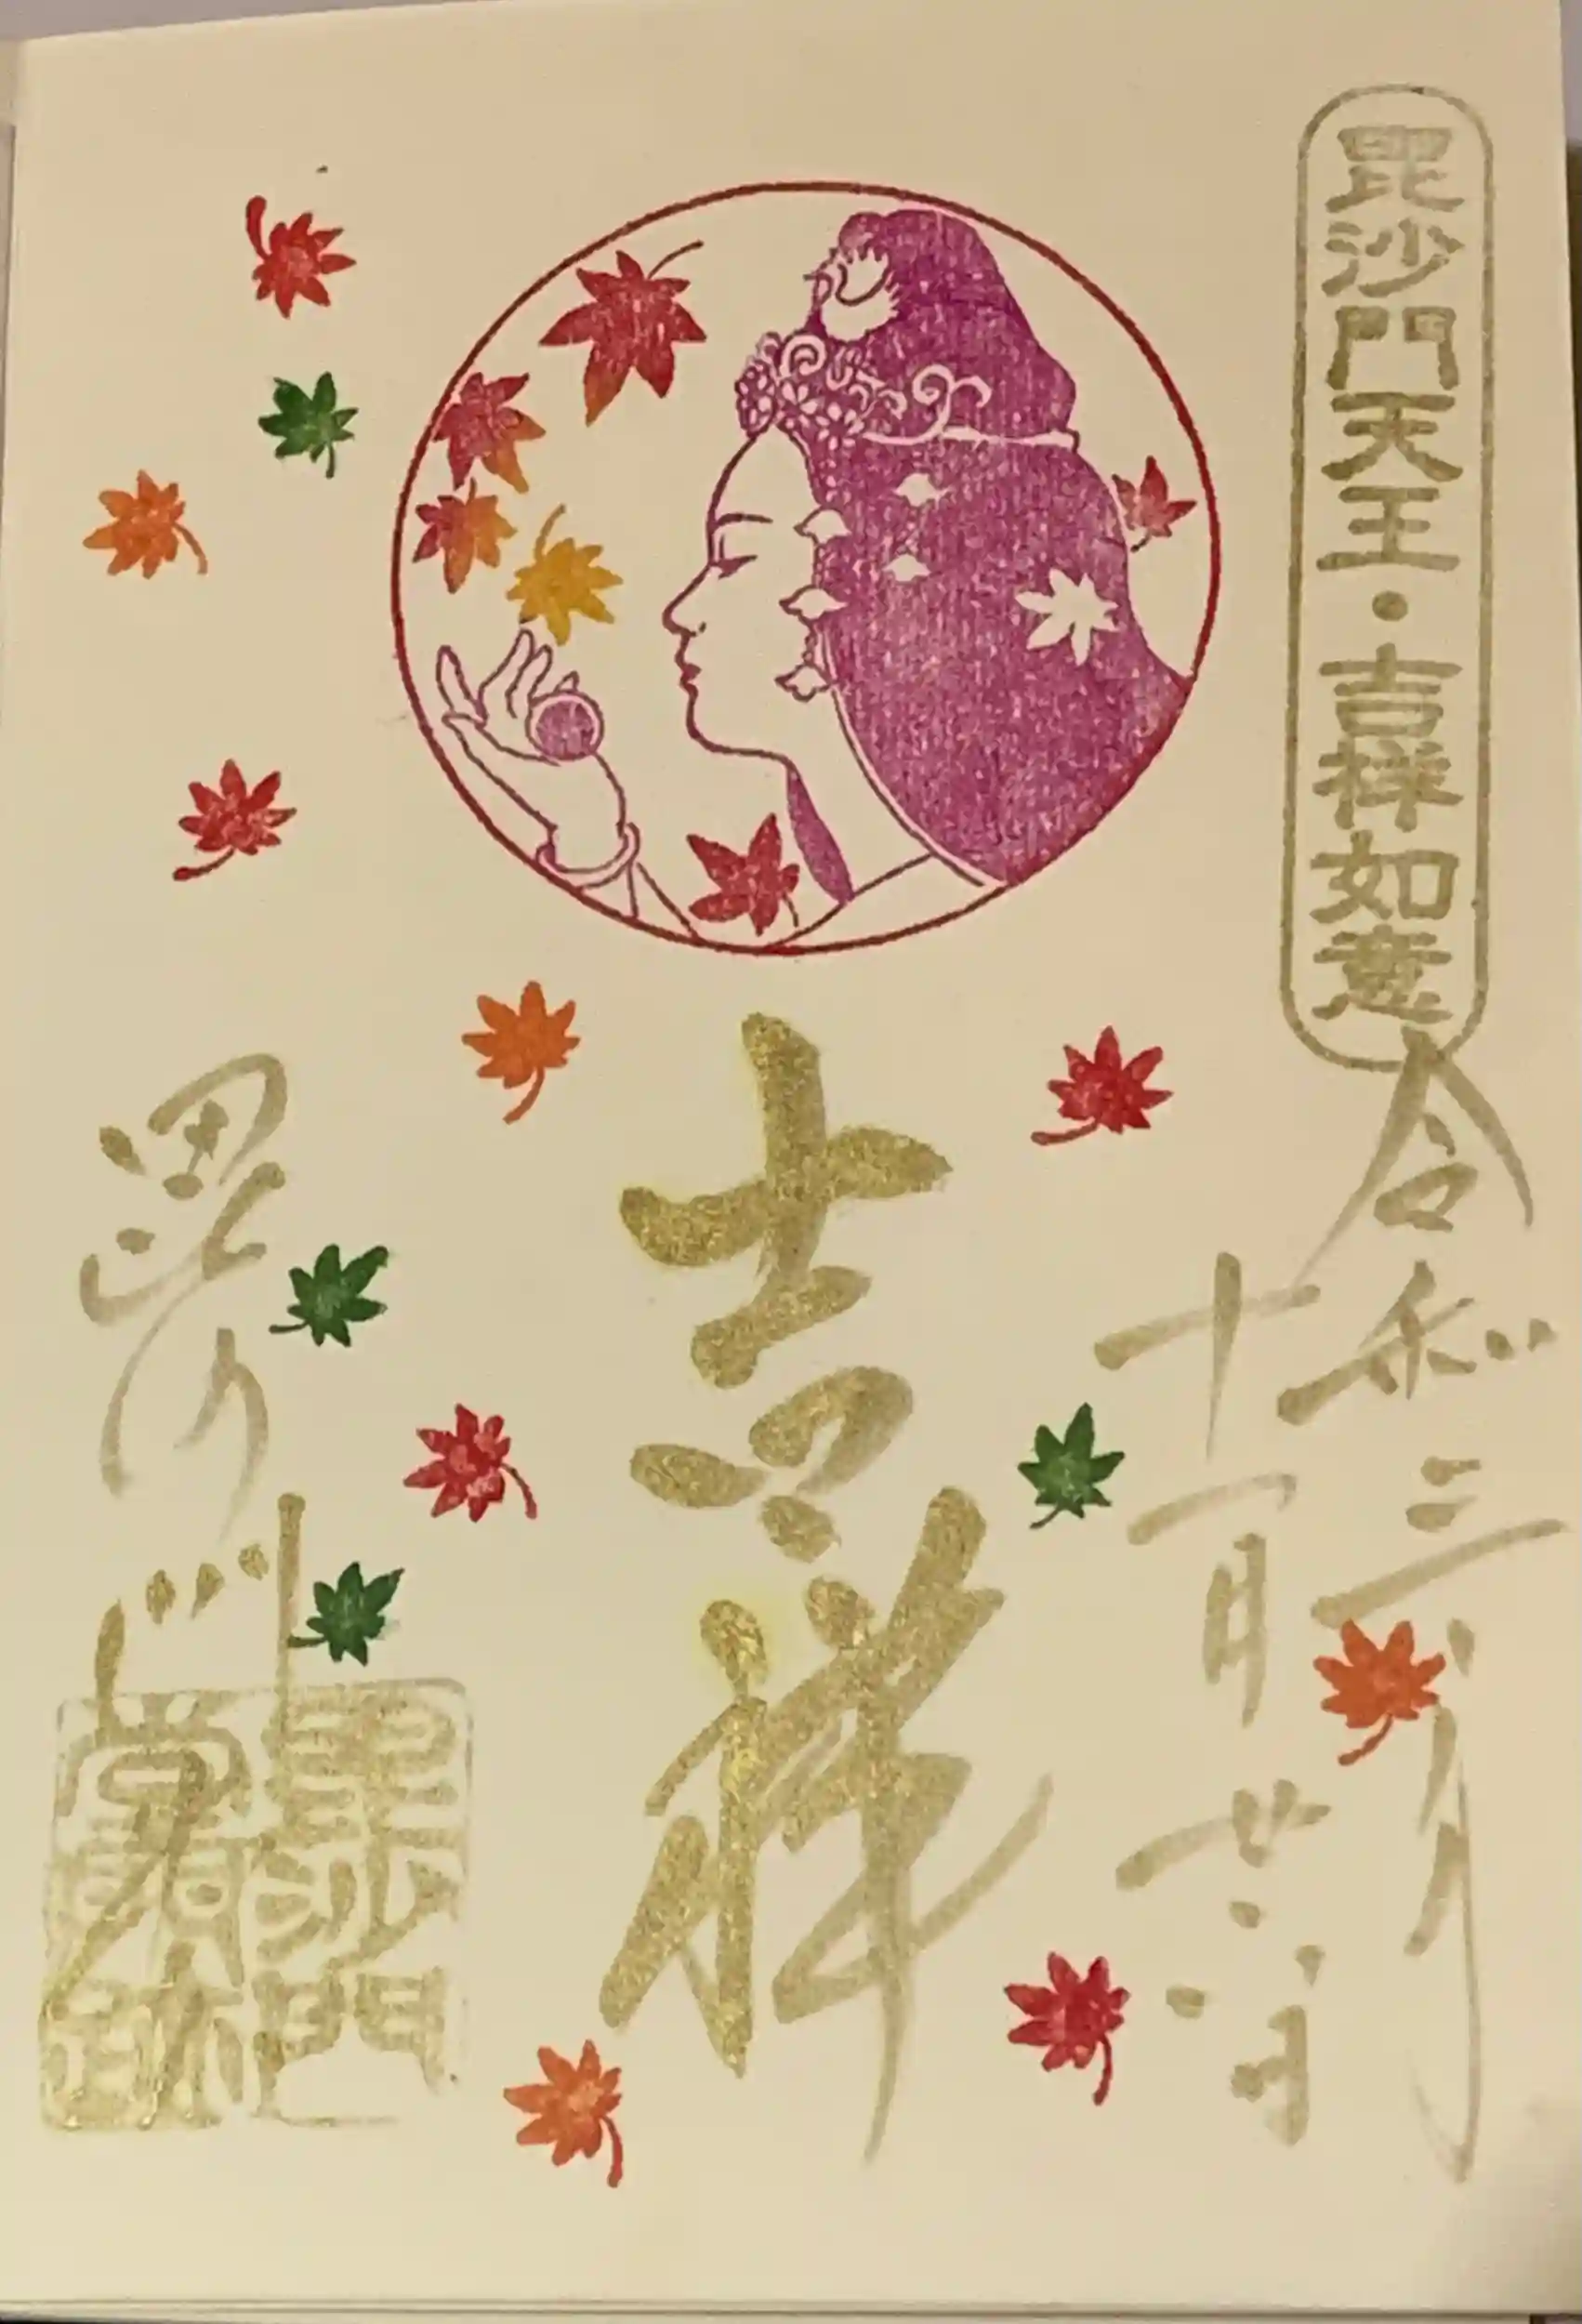 毘沙門天王・吉祥如意
令和三年
十一月
吉祥
毘沙門堂
毘沙門